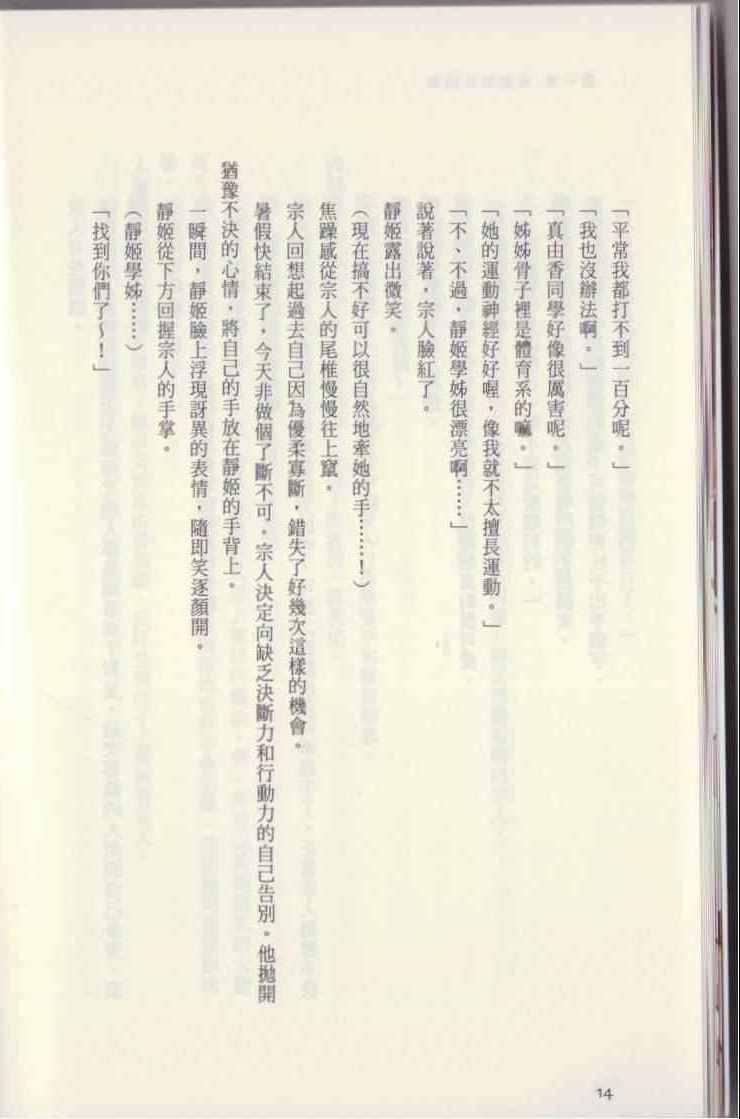 「平常我都打不到一百分呢。」
「我也沒辦法啊。」
「真由香同學好像很厲害呢。」
「姊姊骨子裡是體育系的嘛。」
「她的運動神經好好喔，像我就不太擅長運動。」
「不、不過，靜姬學姊很漂亮啊……」
說著說著，宗人臉紅了。
靜姬露出微笑。
（現在搞不好可以很自然地牽她的手……！）
焦躁感從宗人的尾椎慢慢往上竄。
宗人回想起過去自己因為優柔寡斷，錯失了好幾次這樣的機會。
暑假快結束了，今天非做個了斷不可。宗人決定向缺乏決斷力和行動力的自己告別。他拋開
猶豫不決的心情，將自己的手放在靜姬的手背上。
一瞬間，靜姬臉上浮現訝異的表情，隨即笑逐顏開。
靜姬從下方回握宗人的手掌。
（靜姬學姊……）
「找到你們了～！」
14